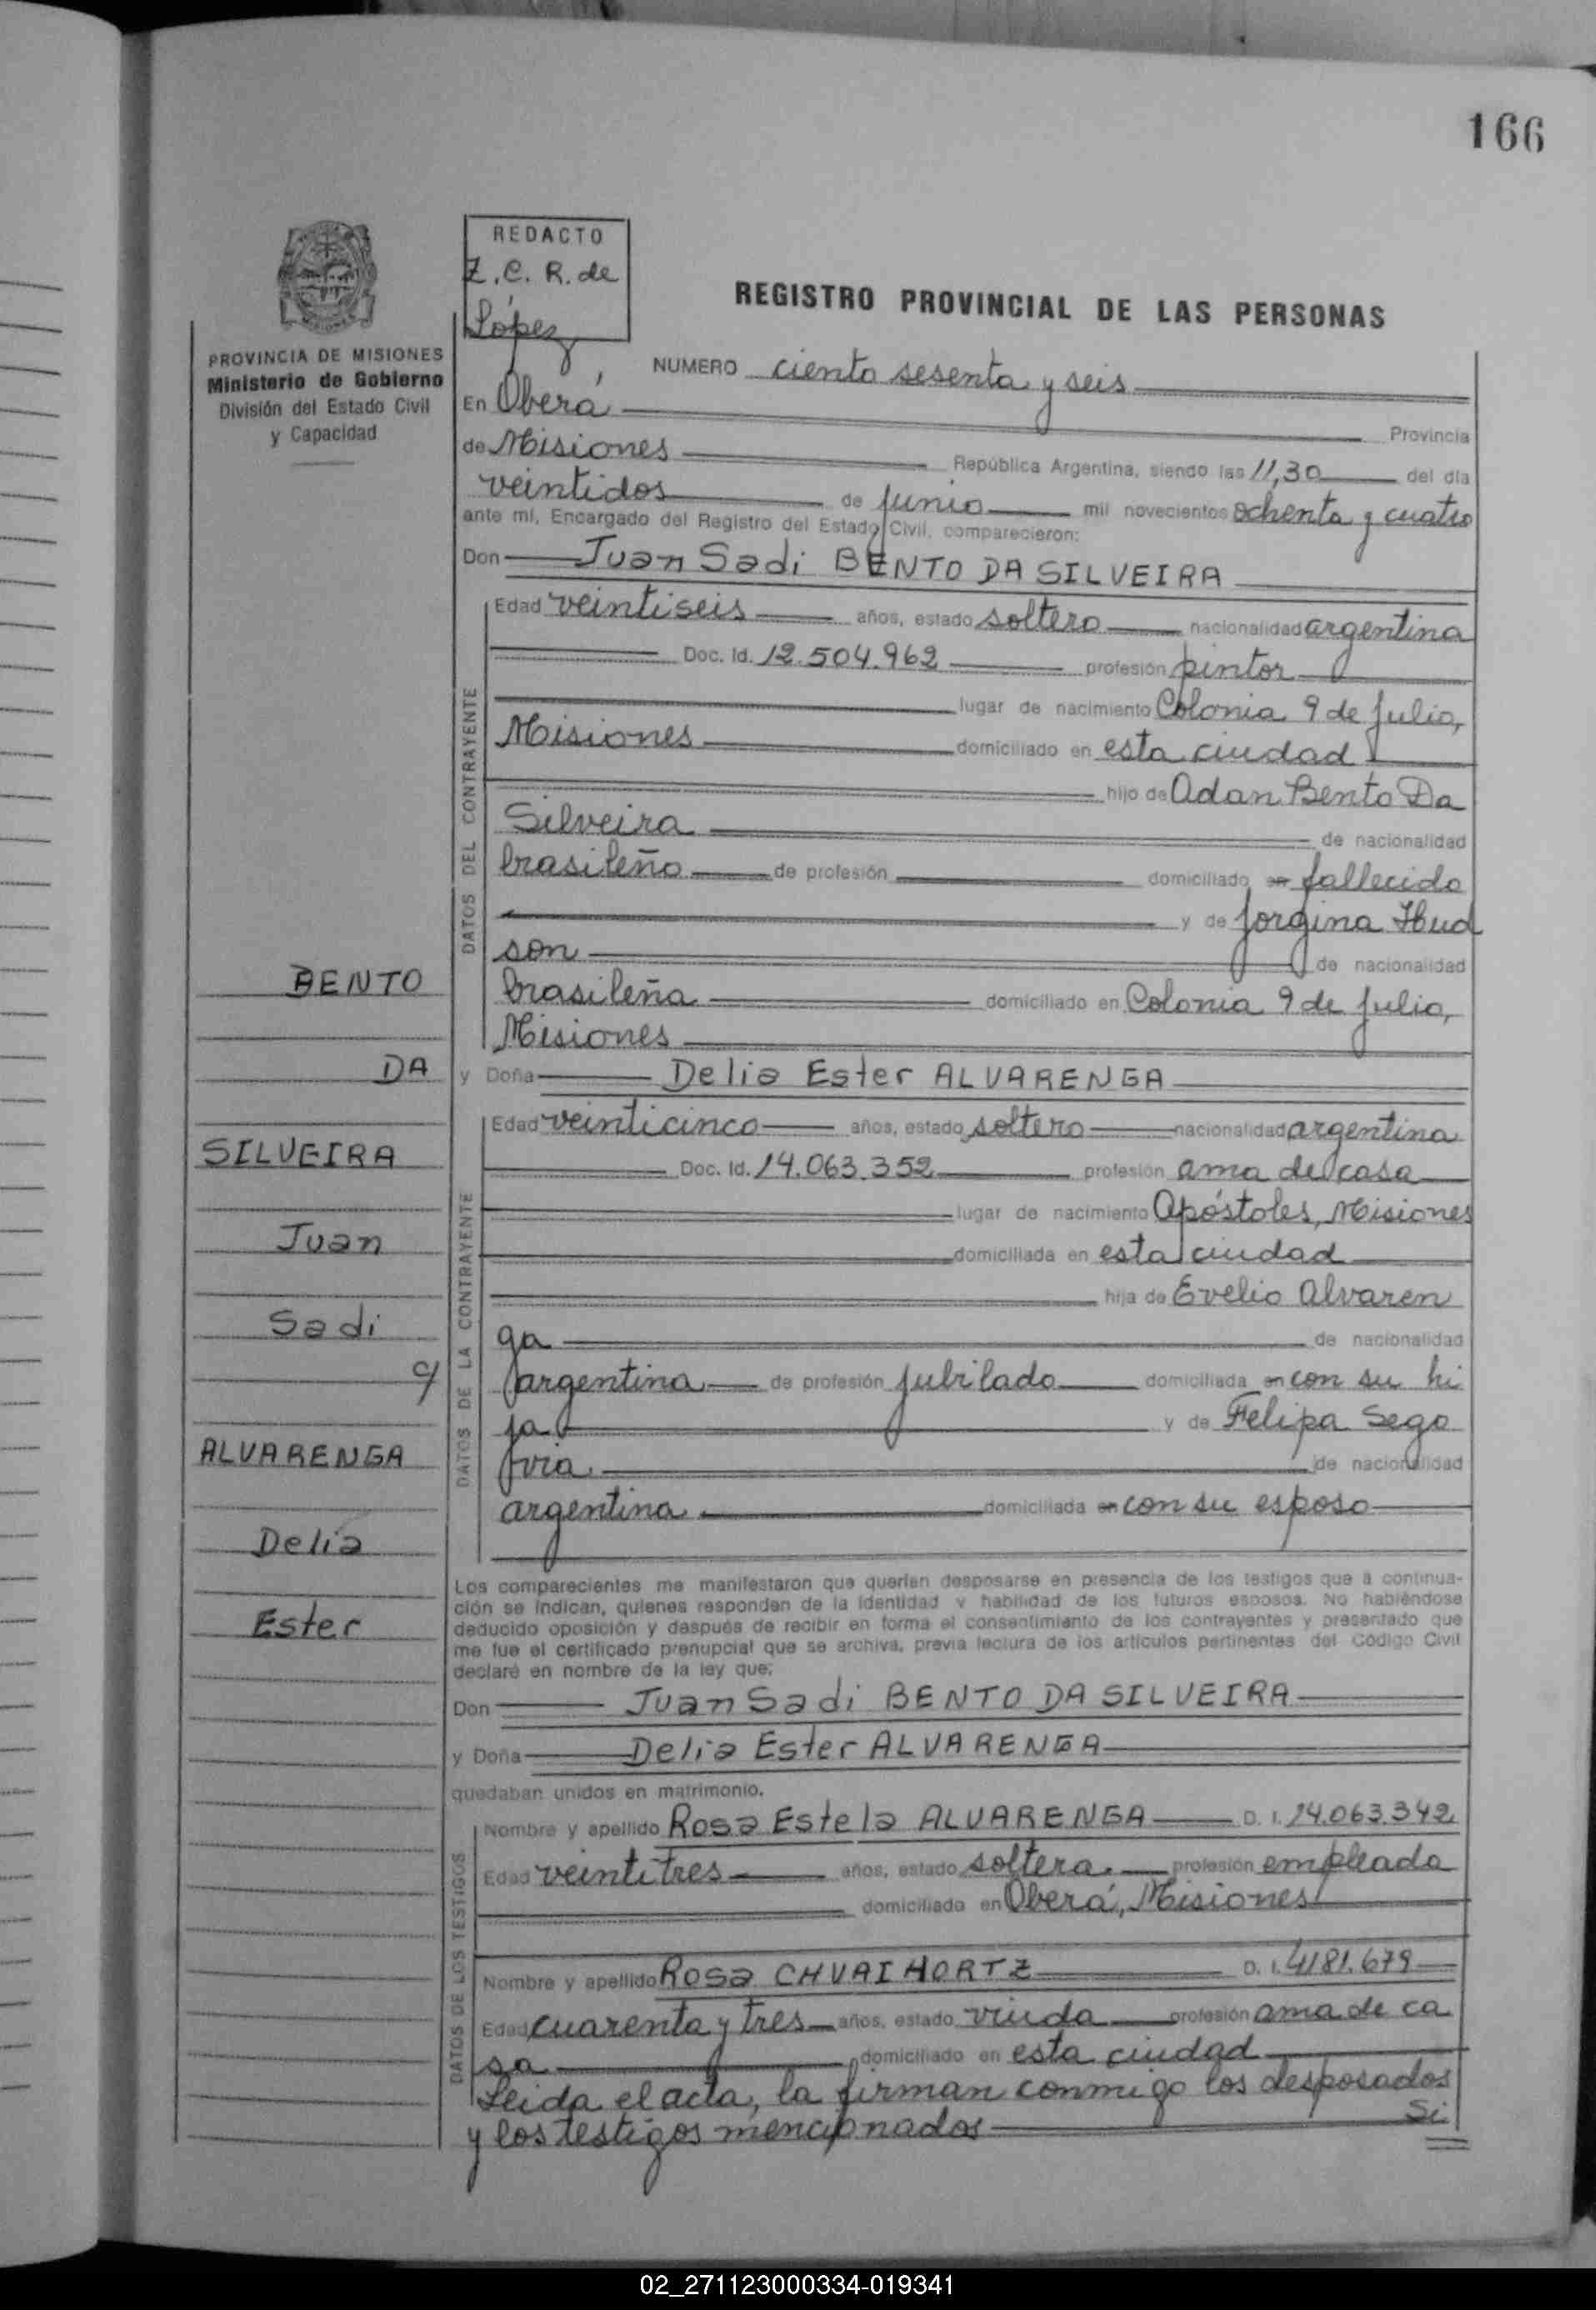 166
REDACTO
Z. C. R. de
López
REGISTRO PROVINCIAL DE LAS PERSONAS
PROVINCIA DE MISIONES
Ministerio de Gobierno
División del Estado Civil
y Capacidad
NUMERO ciento sesenta y seis
En Oberá Provincia
de Misiones República Argentina, siendo las 11,30 del día
veintidos de junio mil novecientos ochenta y cuatro
ante mí, Encargado del Registro del Estado Civil, comparecieron:
Don Juan Sadi BENTO DA SILVEIRA
DATOS DEL CONTRAYENTE
Edad veintiseis años, estado soltero nacionalidad argentina
Doc. Id. 12.504.962 profesión pintor
lugar de nacimiento Colonia 9 de julio,
Misiones domiciliado en esta ciudad
hijo de Adan Bento Da
Silveira de nacionalidad
brasileño de profesión domiciliado en fallecido
y de Jorgina Hud
son de nacionalidad
brasileña domiciliado en Colonia 9 de julio,
Misiones
y Doña Delia Ester ALVARENGA
DATOS DE LA CONTRAYENTE
Edad veinticinco años, estado soltero nacionalidad argentina
Doc. Id. 14.063.352 profesión ama de casa
lugar de nacimiento Apóstoles, Misiones
domiciliada en esta ciudad
hija de Evelio Alvaren
ga de nacionalidad
argentina de profesión jubilado domiciliada en con su hi
ja y de Felipa Sego
via de nacionalidad
argentina domiciliada en con su esposo
BENTO
DA
SILVEIRA
Juan
Sadi
c/
ALVARENGA
Delia
Ester
Los comparecientes me manifestaron que querían desposarse en presencia de los testigos que a continua-
ción se indican, quienes responden de la identidad y habilidad de los futuros esposos. No habiéndose
deducido oposición y después de recibir en forma el consentimiento de los contrayentes y presentado que
me fue el certificado prenupcial que se archiva, previa lectura de los artículos pertinentes del Código Civil
declaré en nombre de la ley que:
Don Juan Sadi BENTO DA SILVEIRA
y Doña Delia Ester ALVARENGA
quedaban unidos en matrimonio.
DATOS DE LOS TESTIGOS
Nombre y apellido Rosa Estela ALVARENGA D. I. 14.063.342
Edad veintitres años, estado soltera profesión empleada
domiciliado en Oberá, Misiones
Nombre y apellido Rosa CHVAIHORTZ D. I. 4181.679
Edad cuarenta y tres años, estado viuda profesión ama de ca
sa domiciliado en esta ciudad
Leida el acta, la firman conmigo los desposados
y los testigos mencionados Si
02_271123000334-019341